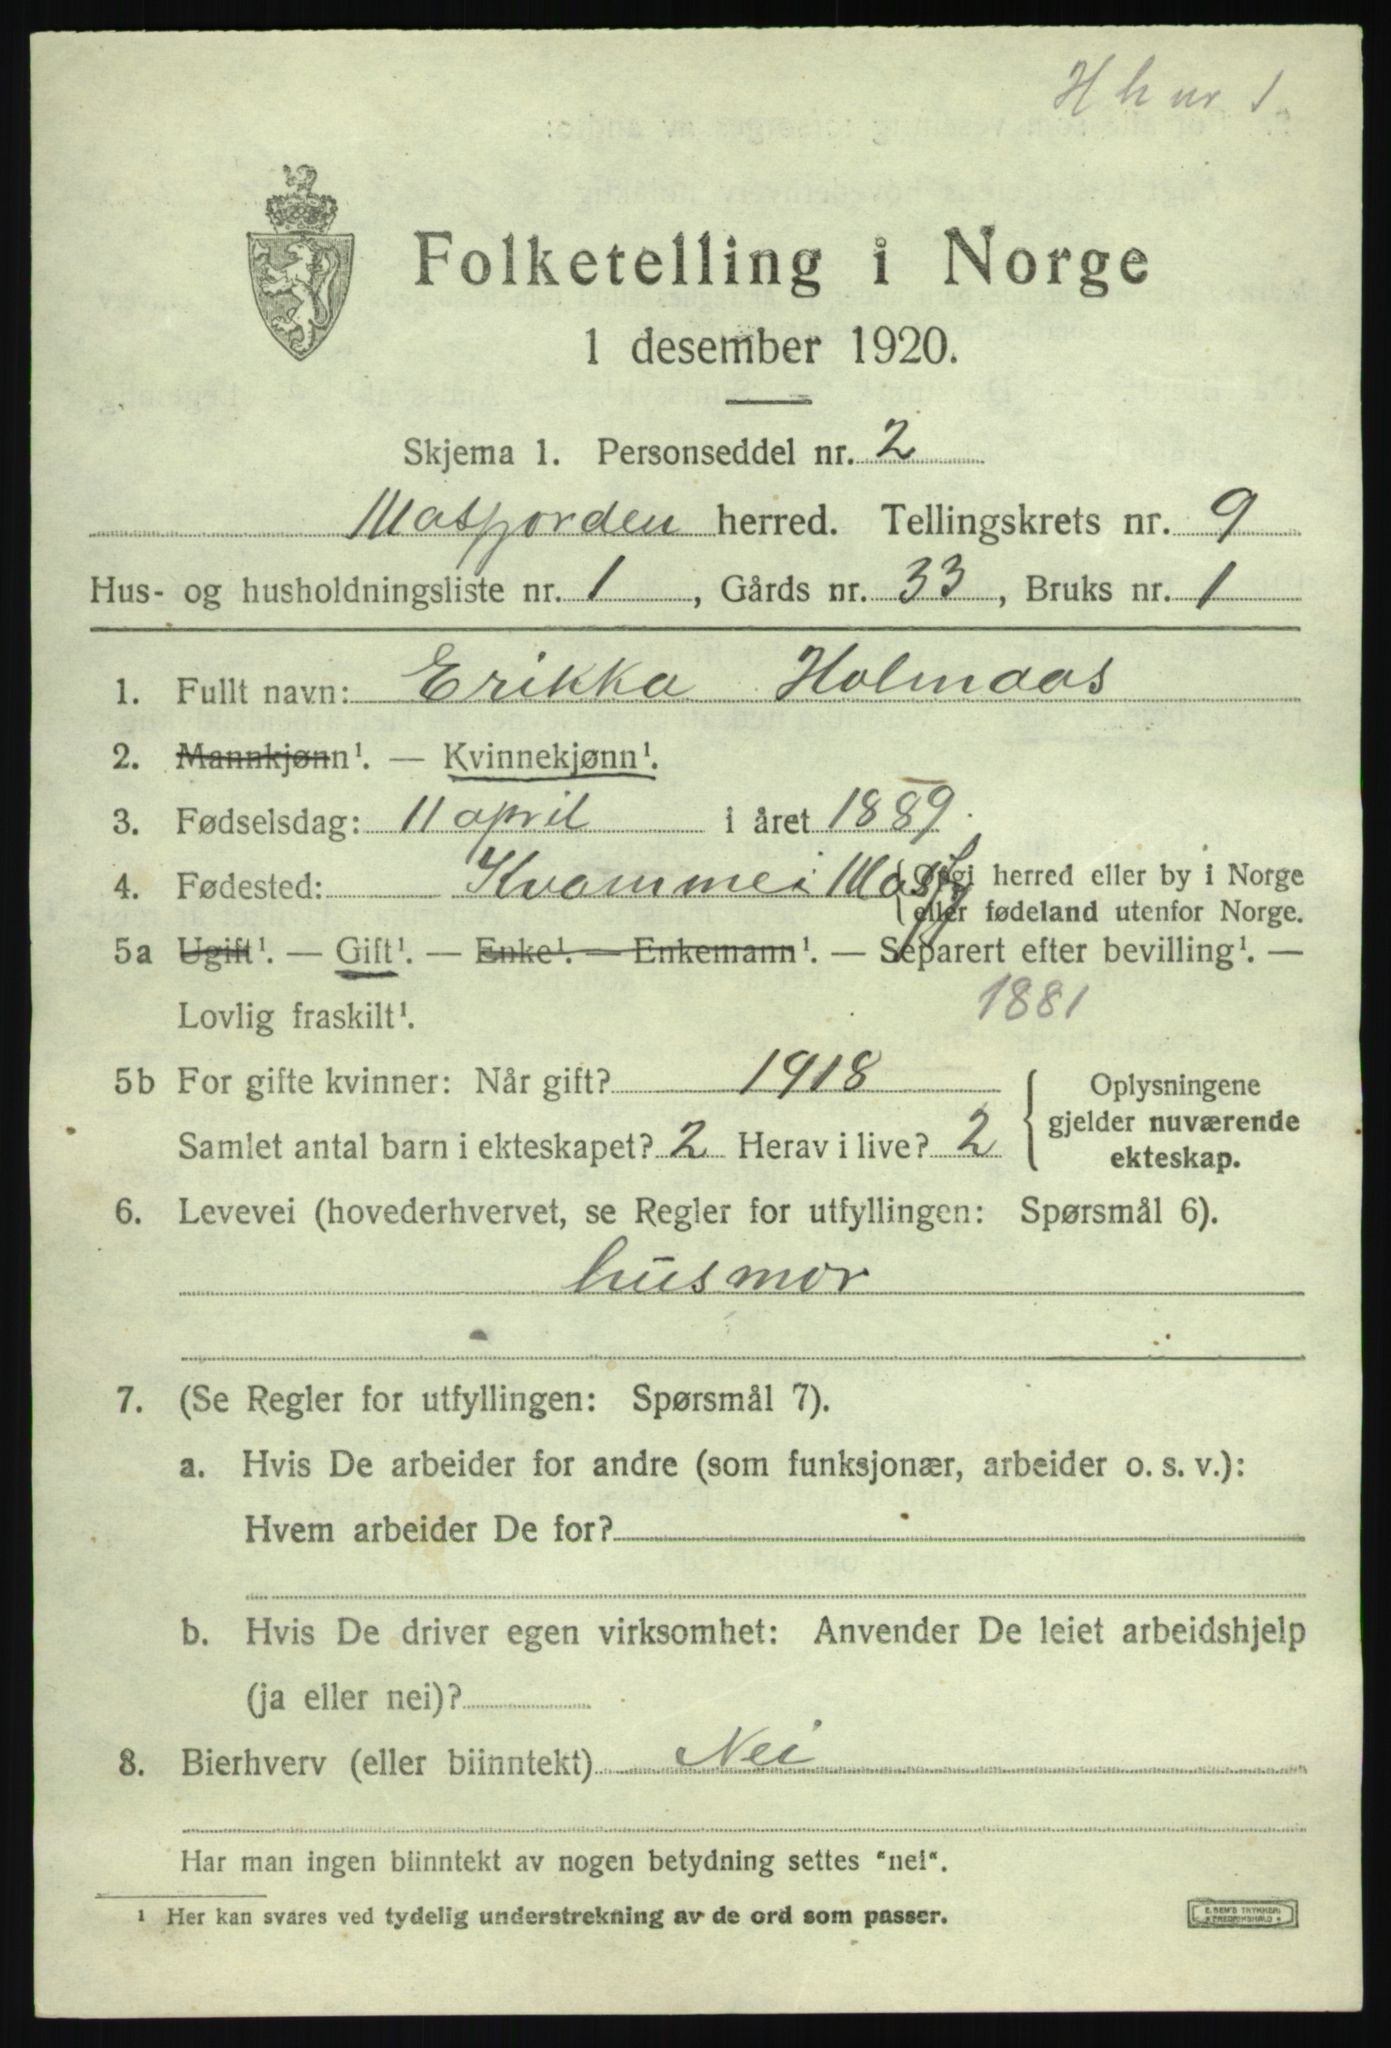 H h nr 1.
Folketelling i Norge
1 desember 1920.
Skjema 1. Personseddel nr. 2
Masfjorden herred. Tellingskrets nr. 9
Hus- og husholdningsliste nr. 1, Gårds nr. 33, Bruks nr. 1
1. Fullt navn: Erikka Holmaas
2. Mannkjønn¹. — Kvinnekjønn¹.
3. Fødselsdag: 11 april i året 1889.
4. Fødested: Kvamme i Masfj (Opgi herred eller by i Norge
eller fødeland utenfor Norge.
5a Ugift¹. — Gift¹. — Enke¹. — Enkemann¹. — Separert efter bevilling¹. —
Lovlig fraskilt¹. 1881
5b For gifte kvinner: Når gift? 1918
Samlet antal barn i ekteskapet? 2 Herav i live? 2
Oplysningene
gjelder nuværende
ekteskap.
6. Levevei (hovederhvervet, se Regler for utfyllingen: Spørsmål 6).
husmor
7. (Se Regler for utfyllingen: Spørsmål 7).
a. Hvis De arbeider for andre (som funksjonær, arbeider o. s. v.):
Hvem arbeider De for?
b. Hvis De driver egen virksomhet: Anvender De leiet arbeidshjelp
(ja eller nei)?
8. Bierhverv (eller biinntekt) Nei
Har man ingen biinntekt av nogen betydning settes "nei".
¹ Her kan svares ved tydelig understrekning av de ord som passer.
E. SEM'S TRYKKERI
FREDRIKSHALD